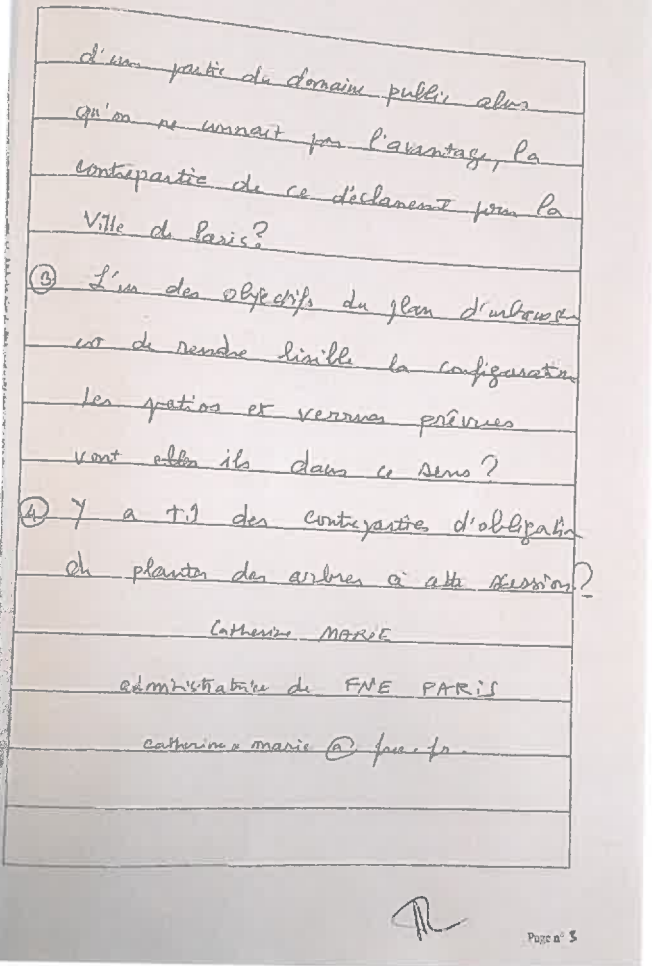 d'un partie du domaine public alors
qu'on ne connait pas l'avantage, la
contrepartie de ce déclassement pour la
Ville de Paris?
③ L'un des objectifs du plan d'urbanisme
est de rendre lisible la configuration
Les patios et verrues prévues
vont elles ils dans ce sens?
④ Y a t il des contreparties d'obligation
de planter des arbres à cette cession?
Catherine MARIE
administratrice de FNE PARIS
marie @ free.fr.
Page n° 3